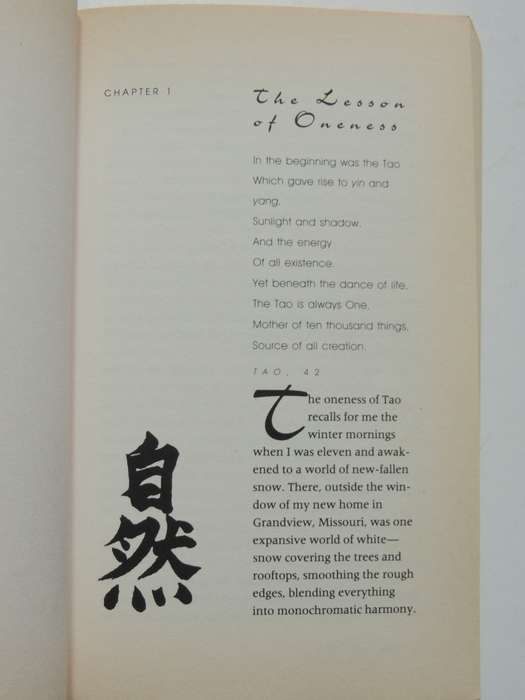 CHAPTER 1
The Lesson
of Oneness
In the beginning was the Tao
Which gave rise to yin and
yang,
Sunlight and shadow,
And the energy
Of all existence.
Yet beneath the dance of life,
The Tao is always One,
Mother of ten thousand things,
Source of all creation.
TAO, 42
The oneness of Tao
recalls for me the
winter mornings
when I was eleven and awak-
ened to a world of new-fallen
snow. There, outside the win-
dow of my new home in
Grandview, Missouri, was one
expansive world of white—
snow covering the trees and
rooftops, smoothing the rough
edges, blending everything
into monochromatic harmony.
自
然